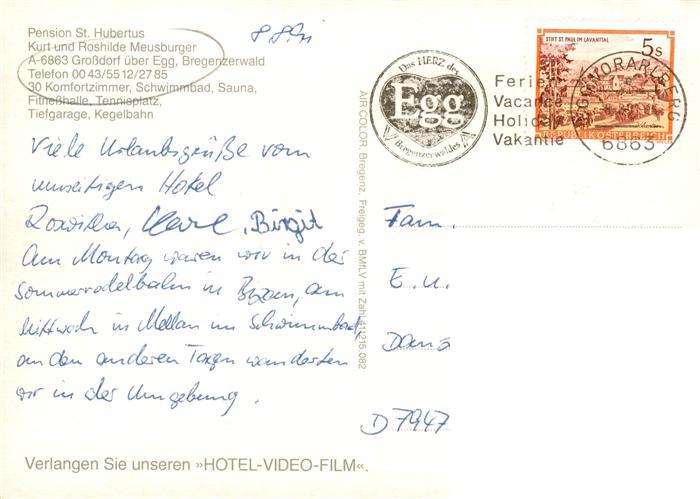 Pension St. Hubertus
Kurt und Roshilde Meusburger
A-6863 Großdorf über Egg, Bregenzerwald
Telefon 00 43/55 12/27 85
30 Komfortzimmer, Schwimmbad, Sauna,
Fitneßhalle, Tennisplatz,
Tiefgarage, Kegelbahn
Viele Urlaubsgrüße vom
umseitigen Hotel
Roswitha, Karl, Birgit
Am Montag waren wir in der
Sommerrodelbahn in Bizau, am
Mittwoch in Mellau im Schwimmbad,
an den anderen Tagen wanderten
wir in der Umgebung.
Verlangen Sie unseren »HOTEL-VIDEO-FILM«.
AIR COLOR, Bregenz, Freigeg. v. BMfLV mit Zahl 411215.082
Das HERZ des
Egg
Bregenzerwaldes
Ferien
Vacance
Holiday
Vakantie
STIFT ST. PAUL IM LAVANTTAL
5 S
REPUBLIK ÖSTERREICH
EGG VORARLBERG
6863
Fam.
E. u.
D 7947